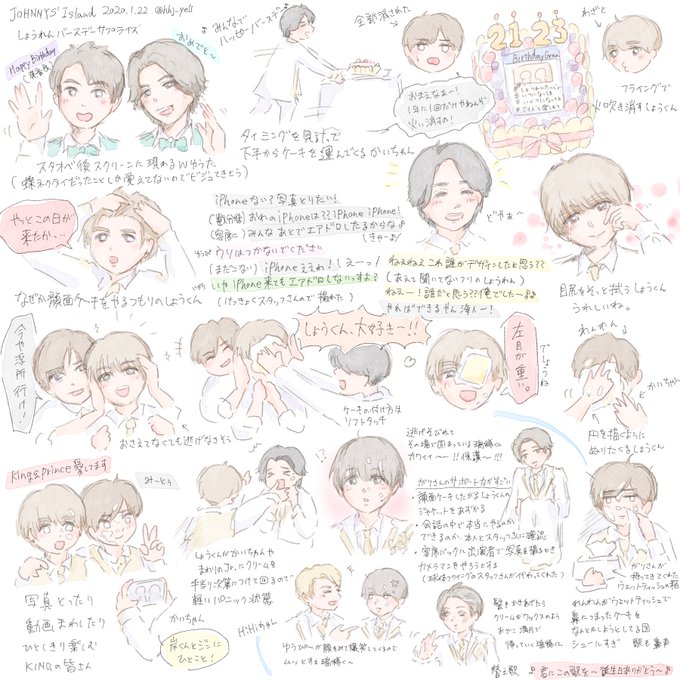 JOHNNYS' Island 2020.1.22 @hhj_yell
しょうれんバースデーサプライズ
Happy Birthday
おめでと〜
スタオベ後スクリーンに現れるWゆうた
(蝶ネクタイだったことしか覚えてないのでビジュできとう)
みんなで
ハッピーバースデー♪
タイミングを見計って
下手からケーキを運んでくるかいちゃん
全部消された
おまえなぁー!
1年に1回だけやねんぞ
火ぃ消すの!
21 23
Birthday
わざと
フライングで
火吹き消すしょうくん
やっとこの日が
来たか…
なぜか顔面ケーキをやるつもりのしょうくん
iPhoneない?写真とりたい!
(数分後)おれのiPhoneは??iPhone iPhone!
(客席に)みんなあとでエアドロしたるからな♪
ウリはつかないでください
(まだこない)iPhoneええわ!しえーっ!
いやiPhone来てもエアドロしないっすよ?
(けっきょくスタッフさんので撮れた)
どやぁ〜
ねぇねぇこれ誰がデザインしたと思う??
(あえて聞いてないフリのしょうれん)
ねえー!誰だと思う??俺でしたー♪
やればできるやん海人ー!
目尻をそっと拭うしょうくん
うれしいね。
今や浮所
行け!
おさえてなくても逃げなさそう
しょうくん、大好き〜!!
ケーキの付け方は
ソフトタッチ
左目が重い。
でしょうね
れんれん
かいちゃん
円を描くように
ぬりたくるしょうくん
King&Prince愛してます
みーとぅ
写真とったり
動画まわしたり
ひとしきり楽しむ
KINGの皆さん
かいちゃん
岸くんとジンに
ひとこと!
しょうくんがかいちゃんや
まわりのJr.にクリームを
手当り次第つけて回るので
軽いパニック状態
!?
逃げそびれて
その場で固まっている瑞稀くん
カワイイ〜!!保護〜!!!
がりさんのサポート力がすごい
・顔面ケーキしたがるしょうくんの
ジャケットをあずかる
・会話の中で本当にやるのか
できるのか、本人とスタッフさんに確認
・客席バックに出演者で写真を撮るとき
カメラマンをやろうとする
HiHiちゃん
ゆうぴーが顔をみて爆笑してくるので
ムッとする瑞稀くん
髪をかきあげたら
クリームがワックスのよう
おでこ満月で
帰っていく瑞稀くん
がりさんが
持ってきてくれた
ウェットティッシュの箱
れんれんがウエットティッシュで
鼻につまったケーキを
なんとかしようとしてる図
シュールすぎ 歌も鼻声
替え歌 ♪君にこの歌を〜誕生日ありがとう〜♪